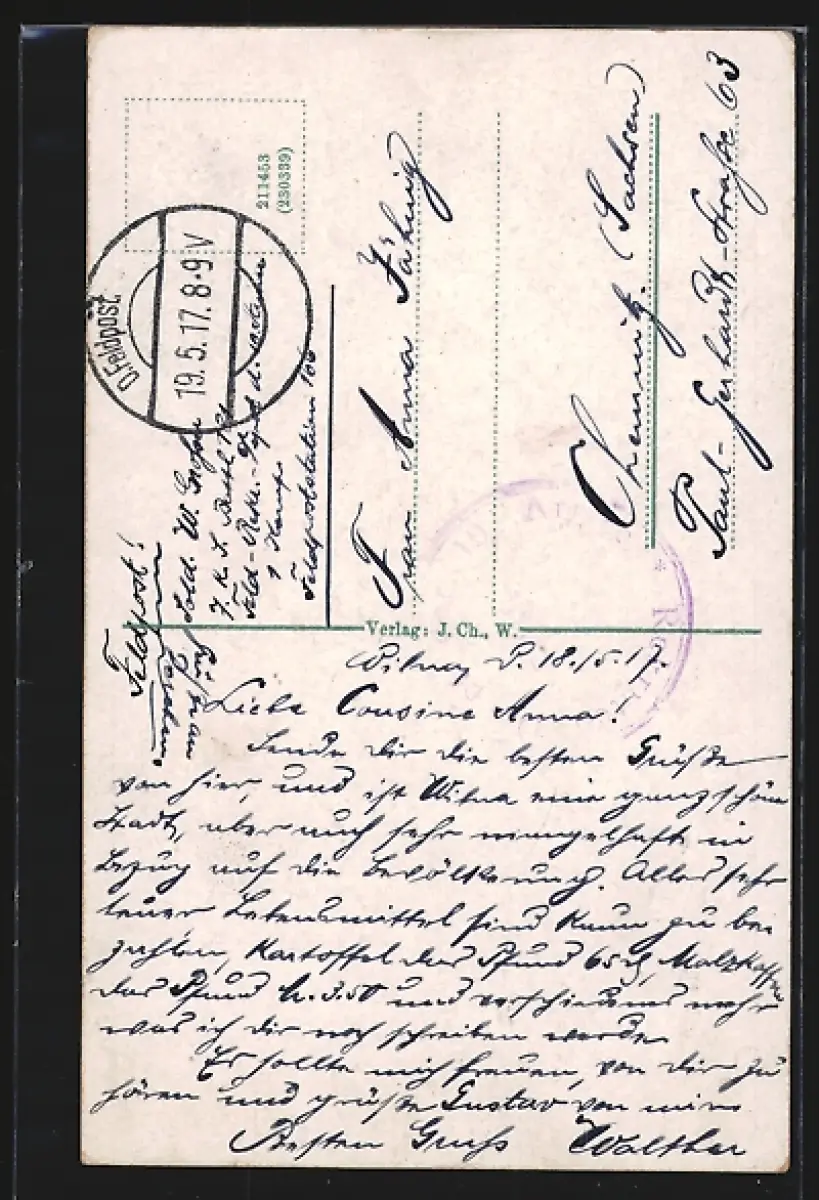 211453
(230339)
D. Feldpost
19.5.17. 8-9 V
Feldpost!
Sold. W.
Feldpoststation 166
Frau Anna
Chemnitz. (Sachsen)
Paul-Gerhardt-Straße 63
Verlag: J. Ch., W.
18./5.17.
Liebe Cousine Anna!
Sende Dir die besten Grüße
von hier, und ist Wilna eine ganz schöne
Stadt, aber auch sehr mangelhaft in
Bezug auf die Bevölkerung. Alles sehr
teuer Lebensmittel sind kaum zu be-
zahlen, Kartoffel das Pfund 65 ₰, Malzkaffee
das Pfund M. 3.50 und verschiedenes mehr
was ich dir noch schreiben werde.
Es sollte mich freuen, von dir zu
hören und grüße Gustav von mir.
Besten Gruß Walther